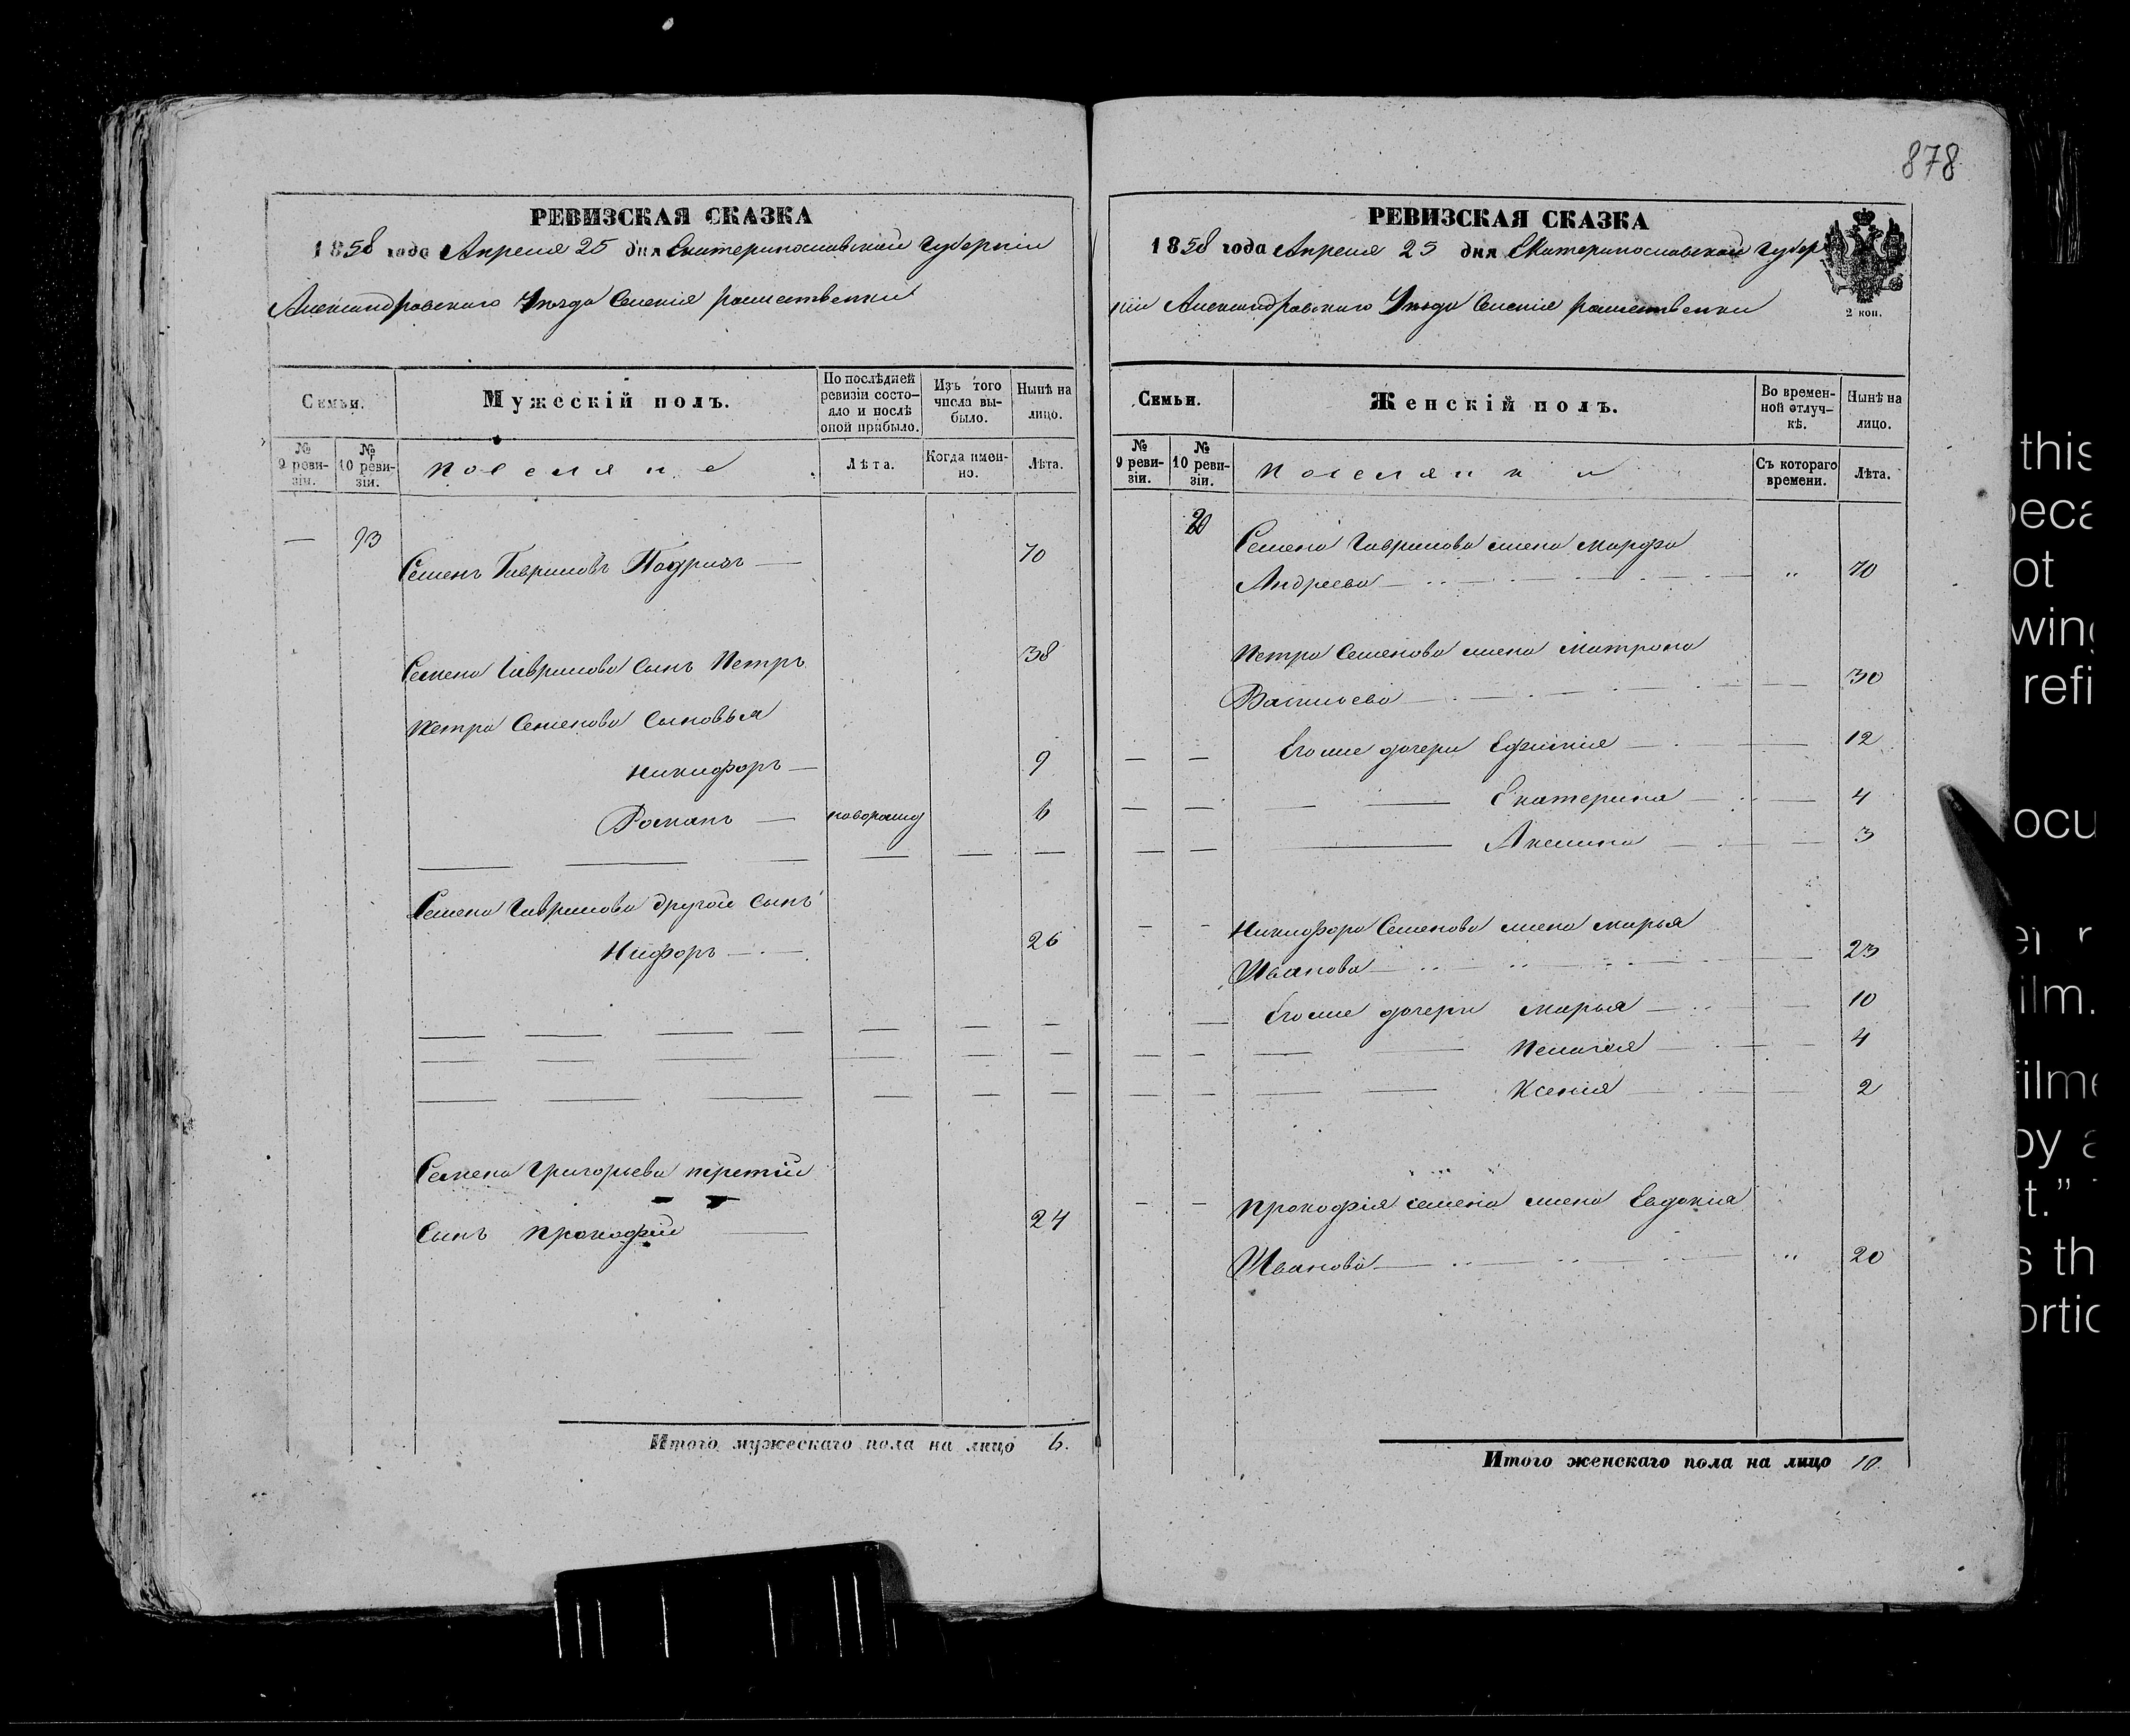 878
РЕВИЗСКАЯ СКАЗКА
1858 года Апреля 25 дня Екатеринославской Губерніи
Александровскаго Уѣзда Селенія
Семьи.
Мужескій полъ.
По послѣдней ревизіи состояло и послѣ оной прибыло.
Изъ того числа выбыло.
Нынѣ на лицо.
№ 9 ревизіи.
№ 10 ревизіи.
Поселяне
Лѣта.
Когда именно.
Лѣта.
— 93
Семенъ Гавриловъ — 70
Семена Гаврилова сынъ Петръ 38
Петра Семенова сыновья
Никифоръ — 9
Романъ — новорожд 6
Семена Гаврилова другой сынъ
Нифоръ — 26
Семена Григорьева третій
сынъ Прокофій — 24
Итого мужескаго пола на лицо 6.
РЕВИЗСКАЯ СКАЗКА
1858 года Апреля 25 дня Екатеринославской Губер
ніи Александровскаго Уѣзда Селенія
2 коп.
Семьи.
Женскій полъ.
Во временной отлучкѣ.
Нынѣ на лицо.
№ 9 ревизіи.
№ 10 ревизіи.
Поселянки
Съ котораго времени.
Лѣта.
Семена Гаврилова жена Марфа
Андреева — " 70
Петра Семенова жена Матрона
Васильева — 30
Его же дочери Ефимія — 12
Екатерина — 4
Акулина — 3
Никифора Семенова жена Марья
Иванова — 23
Его же дочери Марья — 10
Пелагея — 4
Ксенія — 2
Прокофія Семена жена Евдокія
Иванова — " 20
Итого женскаго пола на лицо 10.
this
ot
wing
refi
ocu
ilm.
filme
by a
t."
s th
ortic